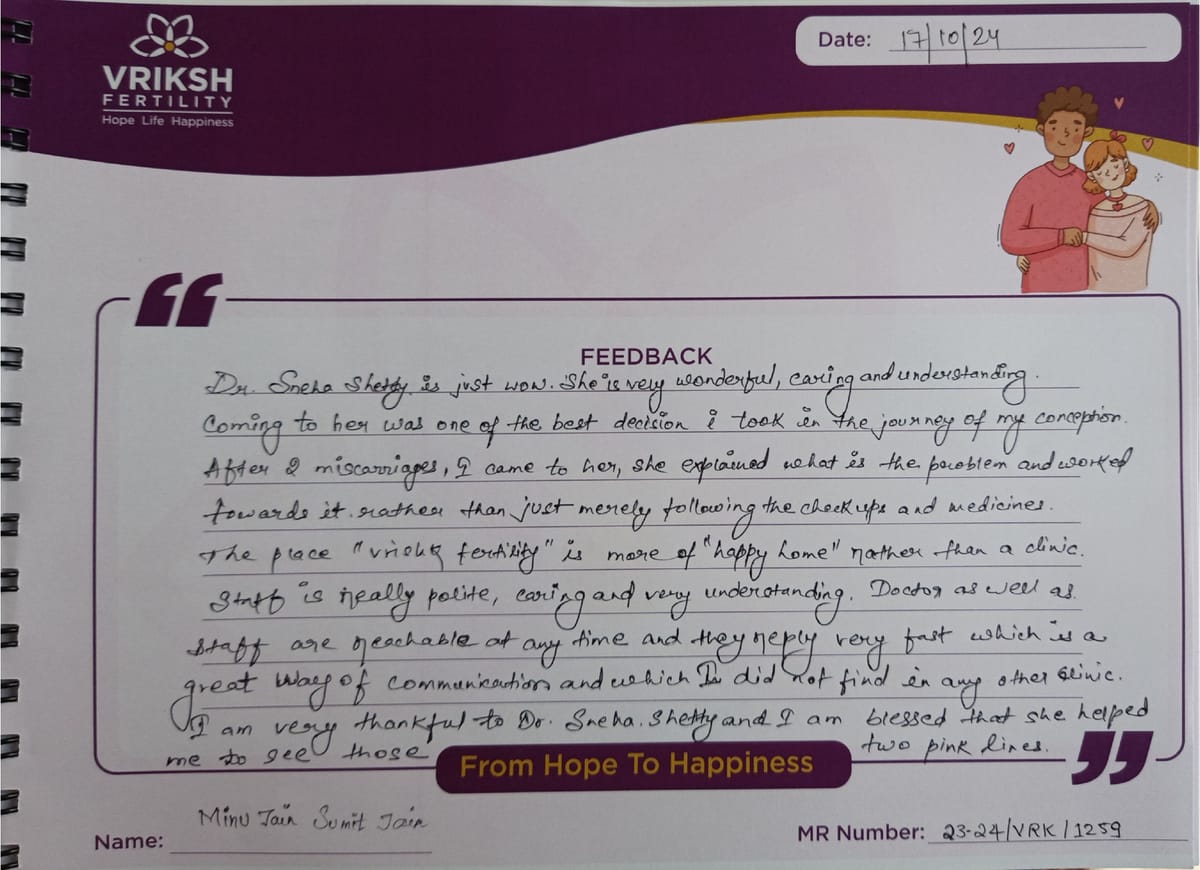 VRIKSH
FERTILITY
Hope Life Happiness
Date: 17/10/24
FEEDBACK
Dr. Sneha Shetty is just wow. She is very wonderful, caring and understanding.
Coming to her was one of the best decision i took in the journey of my conception.
After 2 miscarriages, I came to her, she explained what is the problem and worked
towards it rather than just merely following the checkups and medicines.
The place "Vriksh fertility" is more of "happy home" rather than a clinic.
Staff is really polite, caring and very understanding. Doctor as well as
staff are reachable at any time and they reply very fast which is a
great way of communication and which I did not find in any other clinic.
I am very thankful to Dr. Sneha. Shetty and I am blessed that she helped
me to see those two pink lines.
From Hope To Happiness
Name: Minu Jain Sumit Jain
MR Number: 23-24/VRK/1259